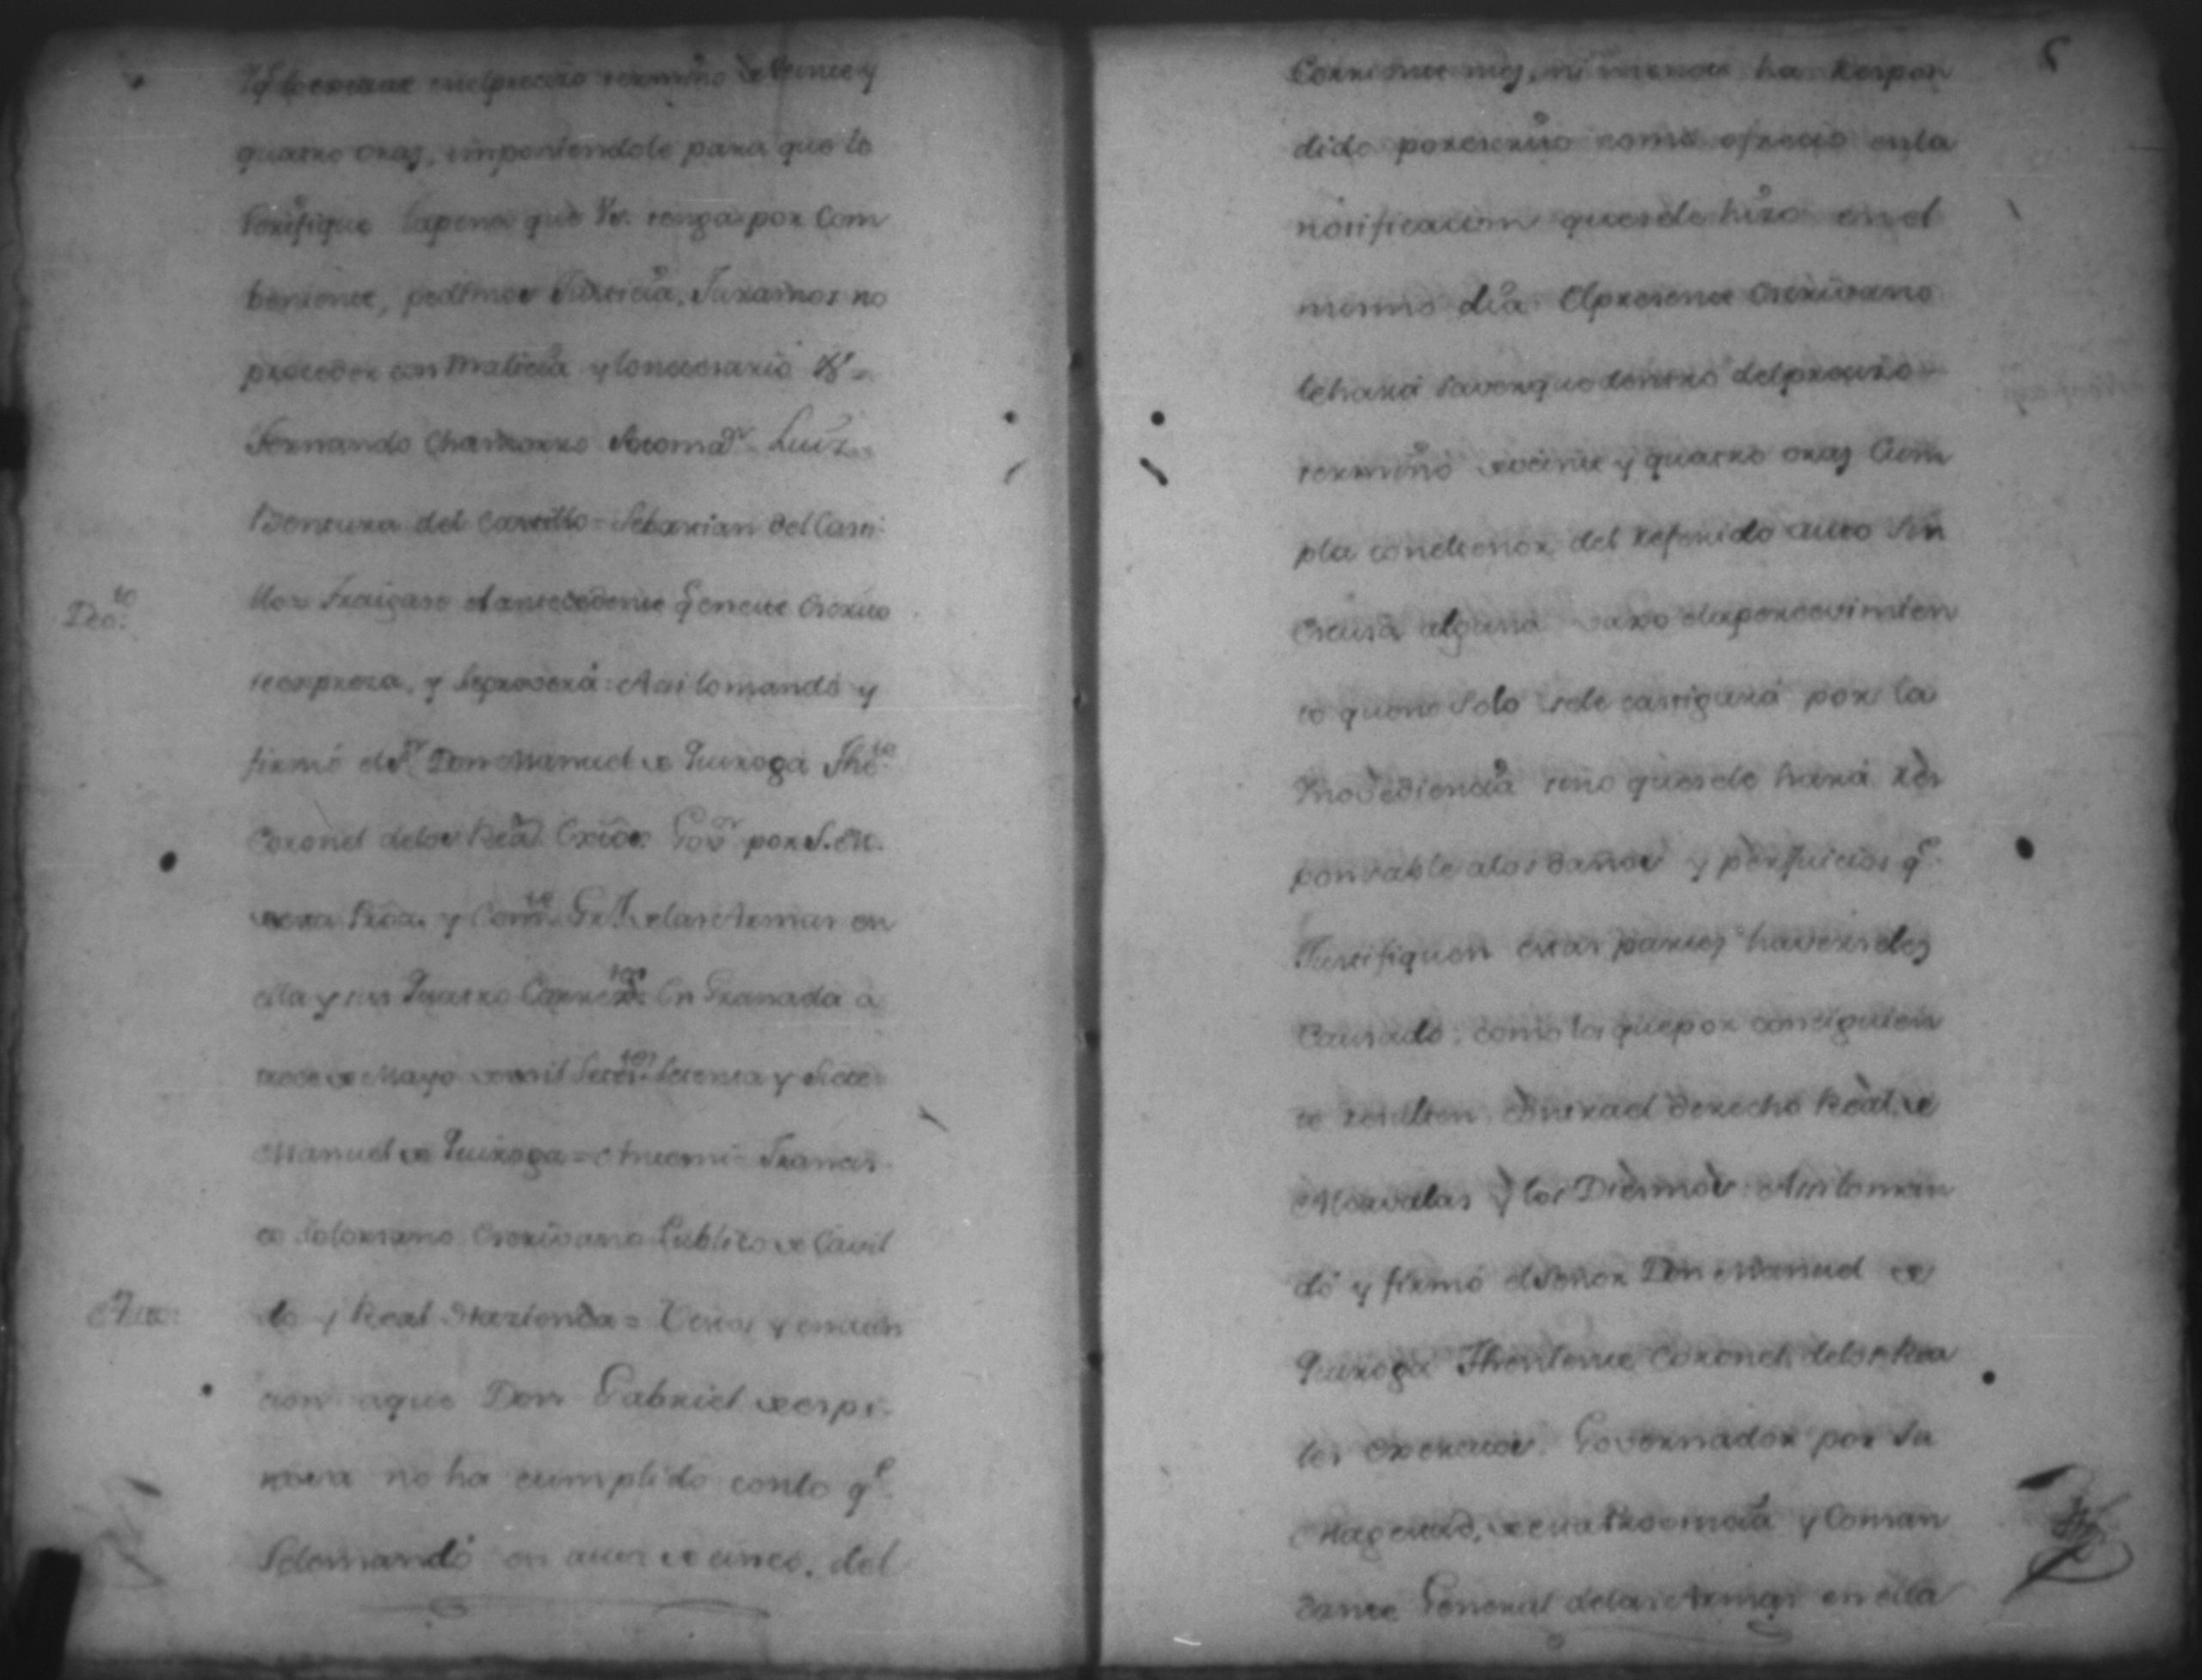 termino de veinte y
quatro oras, imponiendole para que lo
berifique lapena que Vs. tenga por Com
beniente, pedimos Justicia, Juramos no
proceder con malicia y lonecesario &a =
Fernando Chamorro Luis
Bentura del Castillo = Sebastian del Casti
llo = Traigase el antecedente qe. eneste Escrito
seexpreza, y seproverá: Asi lomandó y
firmó el Sr. Don Manuel de Quiroga The.te
Coronel delos Rea.s Exitos. Govor. por S. M.
deesta Proa. y Comte. Grl. delas Armas en
ella y sus Quatro Corregtos. En Granada a
trece de Mayo demil Setetos. Setenta y Siete =
Manuel de Quiroga = Antemi = Francis
co Solorsano Escrivano Publico de Cavil
Auto: do y Real Hazienda = Vistos y enaten
cion aque Don Gabriel de espi
nosa no ha cumplido conlo qe.
Selemandó en auto de cinco, del
5
Corriente mes, ni menos ha Respon
dido porescrito como ofrecio enla
notificacion quesele hizo en el
mismo dia: Elpresente Escrivano
lehará saverque dentro delpreciso
termino deveinte y quatro oras Cum
pla coneltenor del referido auto Sin
Escusa alguna vaxo elapercevimien
to queno Solo sele castigará por la
Ynovediencia sino quesele hará res
ponsable alos daños y perjuicios qe.
Justifiquen estas partes haverseles
Causado, como los quepor consiguien
te resulten Contrael derecho Real de
Alcavalas y los Diesmos: Asi loman
dó y firmó elSeñor Don Manuel de
Quiroga Theniente Coronel delos Rea
les Exercitos Governador por Su
Magestad, de esta Provincia y Coman
dante General delas Armas en ella